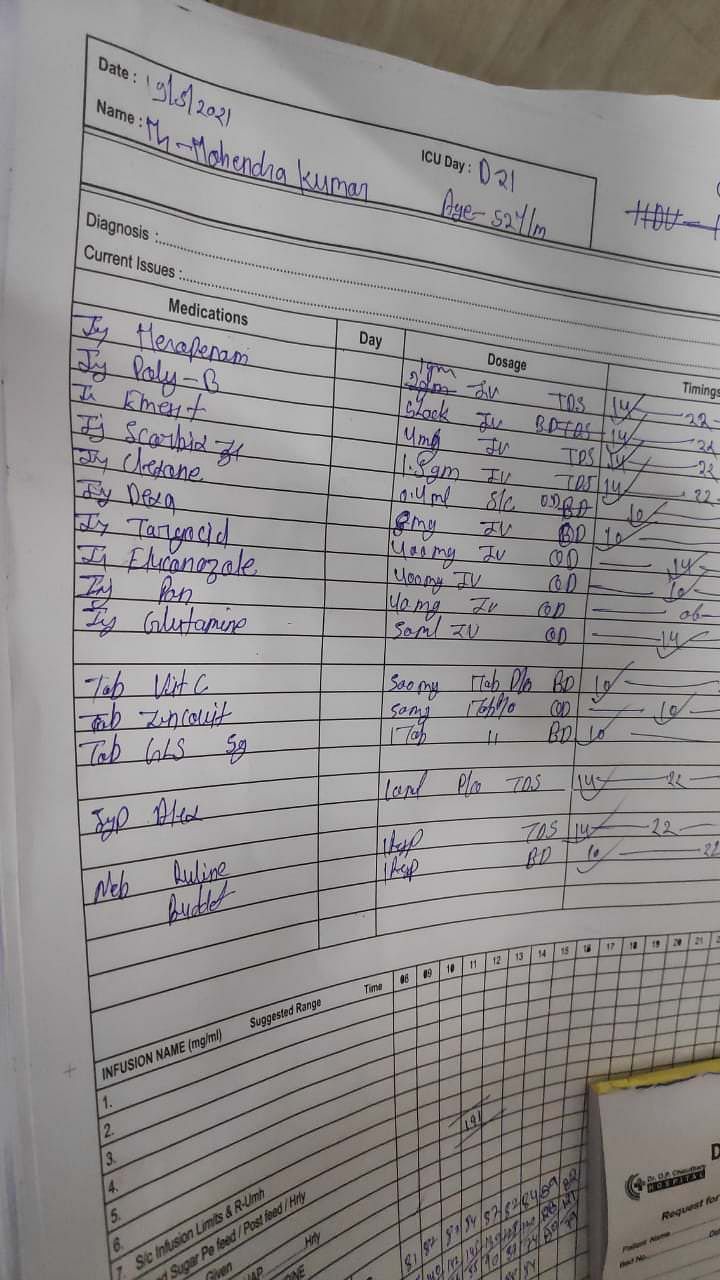 Date : 19/5/2021
Name : Mr - Mahendra Kumar
ICU Day : D21
Age - 52Y/m
HDU
Diagnosis :
Current Issues :
Medications Day Dosage Timings
Inj Meropenam 1gm 2gm IV TDS 14 22
Inj Poly-B 5lack IV BD TDS 14 22
In Emest 4mg IV TDS 14 22
Inj Scorbix 1.5gm IV TDS 14 22
Inj Clexane 0.4ml S/C OD BD 10
Inj Dexa 8mg IV BD 10
Inj Targocid 400mg IV OD 14
Inj Fluconazole 400mg IV OD 10
Inj Pan 40mg IV OD 06
Inj Glutamine 50ml IV OD 14
Tab Vit C 500mg 1Tab P/o BD 10
Tab Zincovit 50mg 1Tab P/o OD 10
Tab GLS 5g 1Tab 11 BD 10
Syp Alex 10ml P/o TDS 14 22
Neb Duline 1Resp TDS 14 22
Buddet 1Resp BD 10 22
INFUSION NAME (mg/ml) Suggested Range Time 08 09 10 11 12 13 14 15 16 17 18 19 20 21
1.
2.
3.
4.
5.
6.
7.
191
S/c Infusion Limits & R-Umh
Sugar Pe feed / Post feed / Hrly
Given Hrly
81 82 83 84 82 82 84 89 82
Dr. O.P. Choudhary
HOSPITAL
Request for
Patient Name
Bed No.